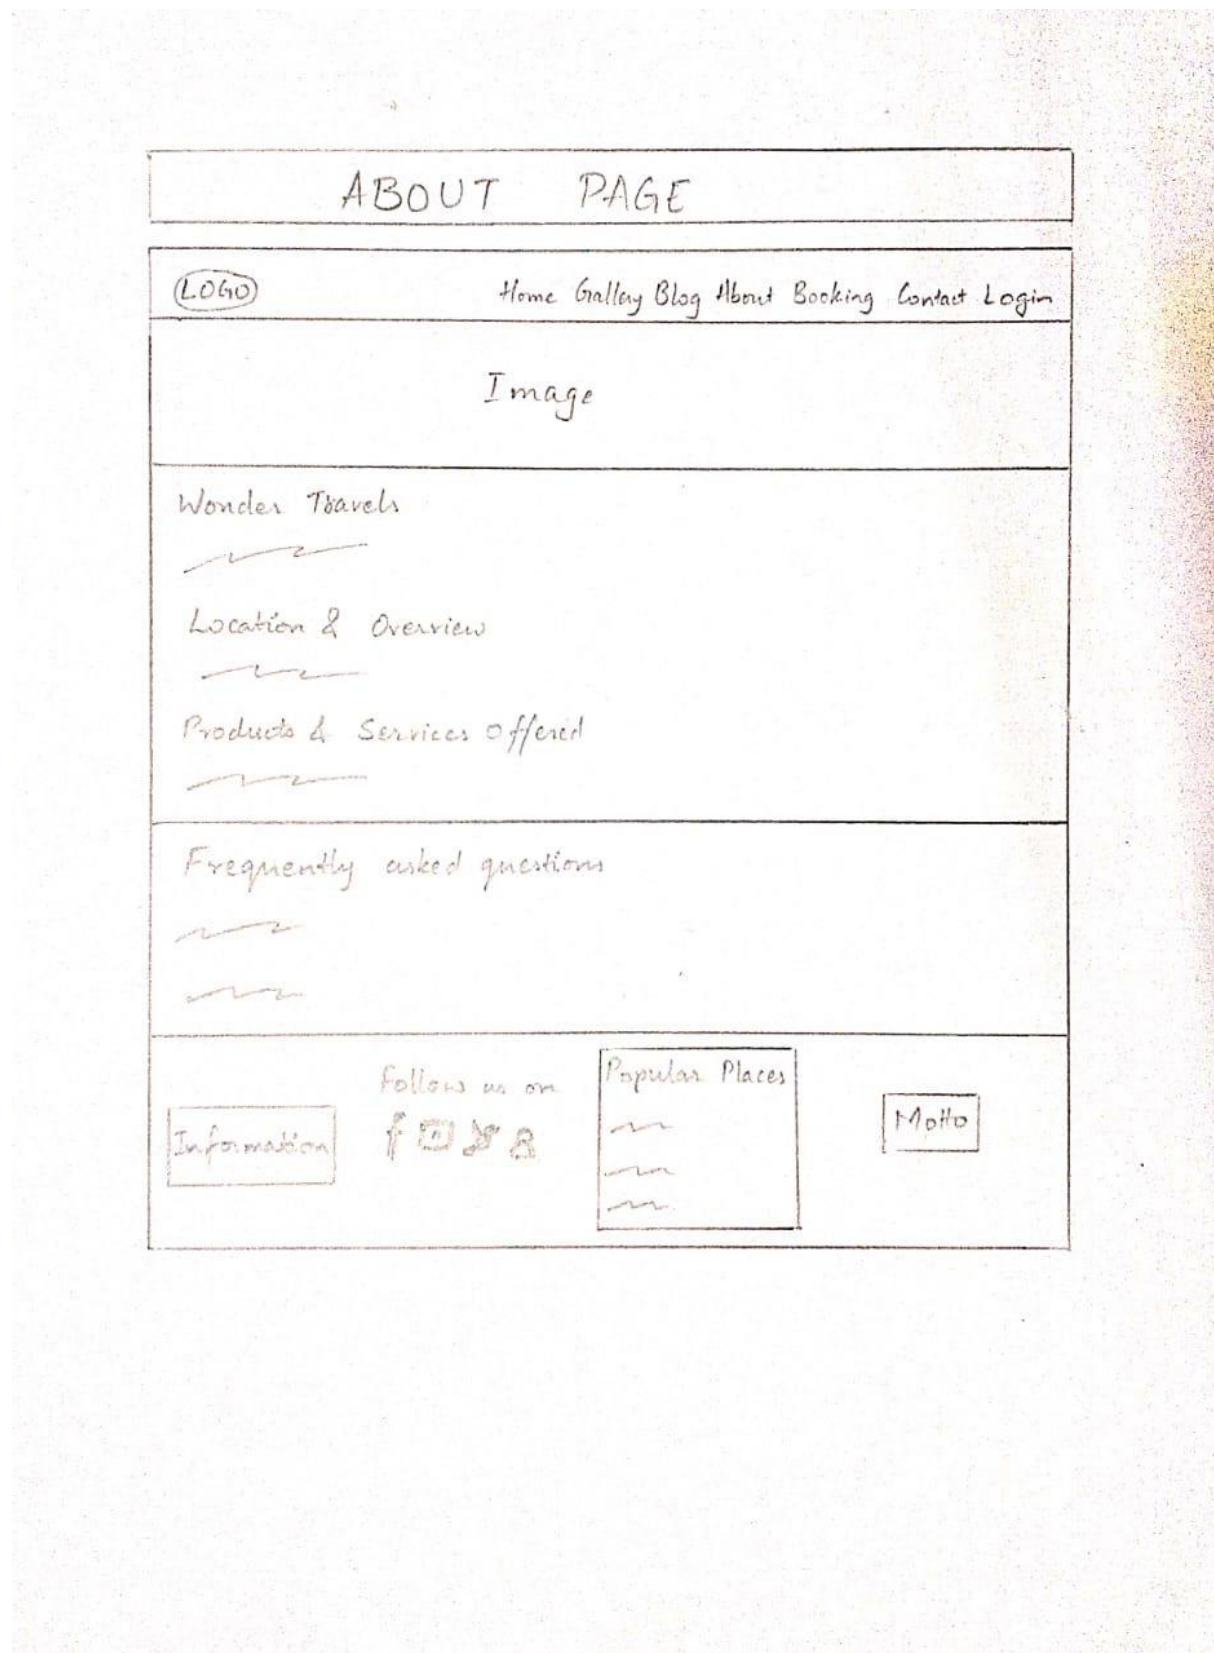 ABOUT PAGE
LOGO Home Gallery Blog About Booking Contact Login
Image
Wonder Travels
Location & Overview
Products & Services Offered
Frequently asked questions
Information
Follow us on
f
Popular Places
Motto